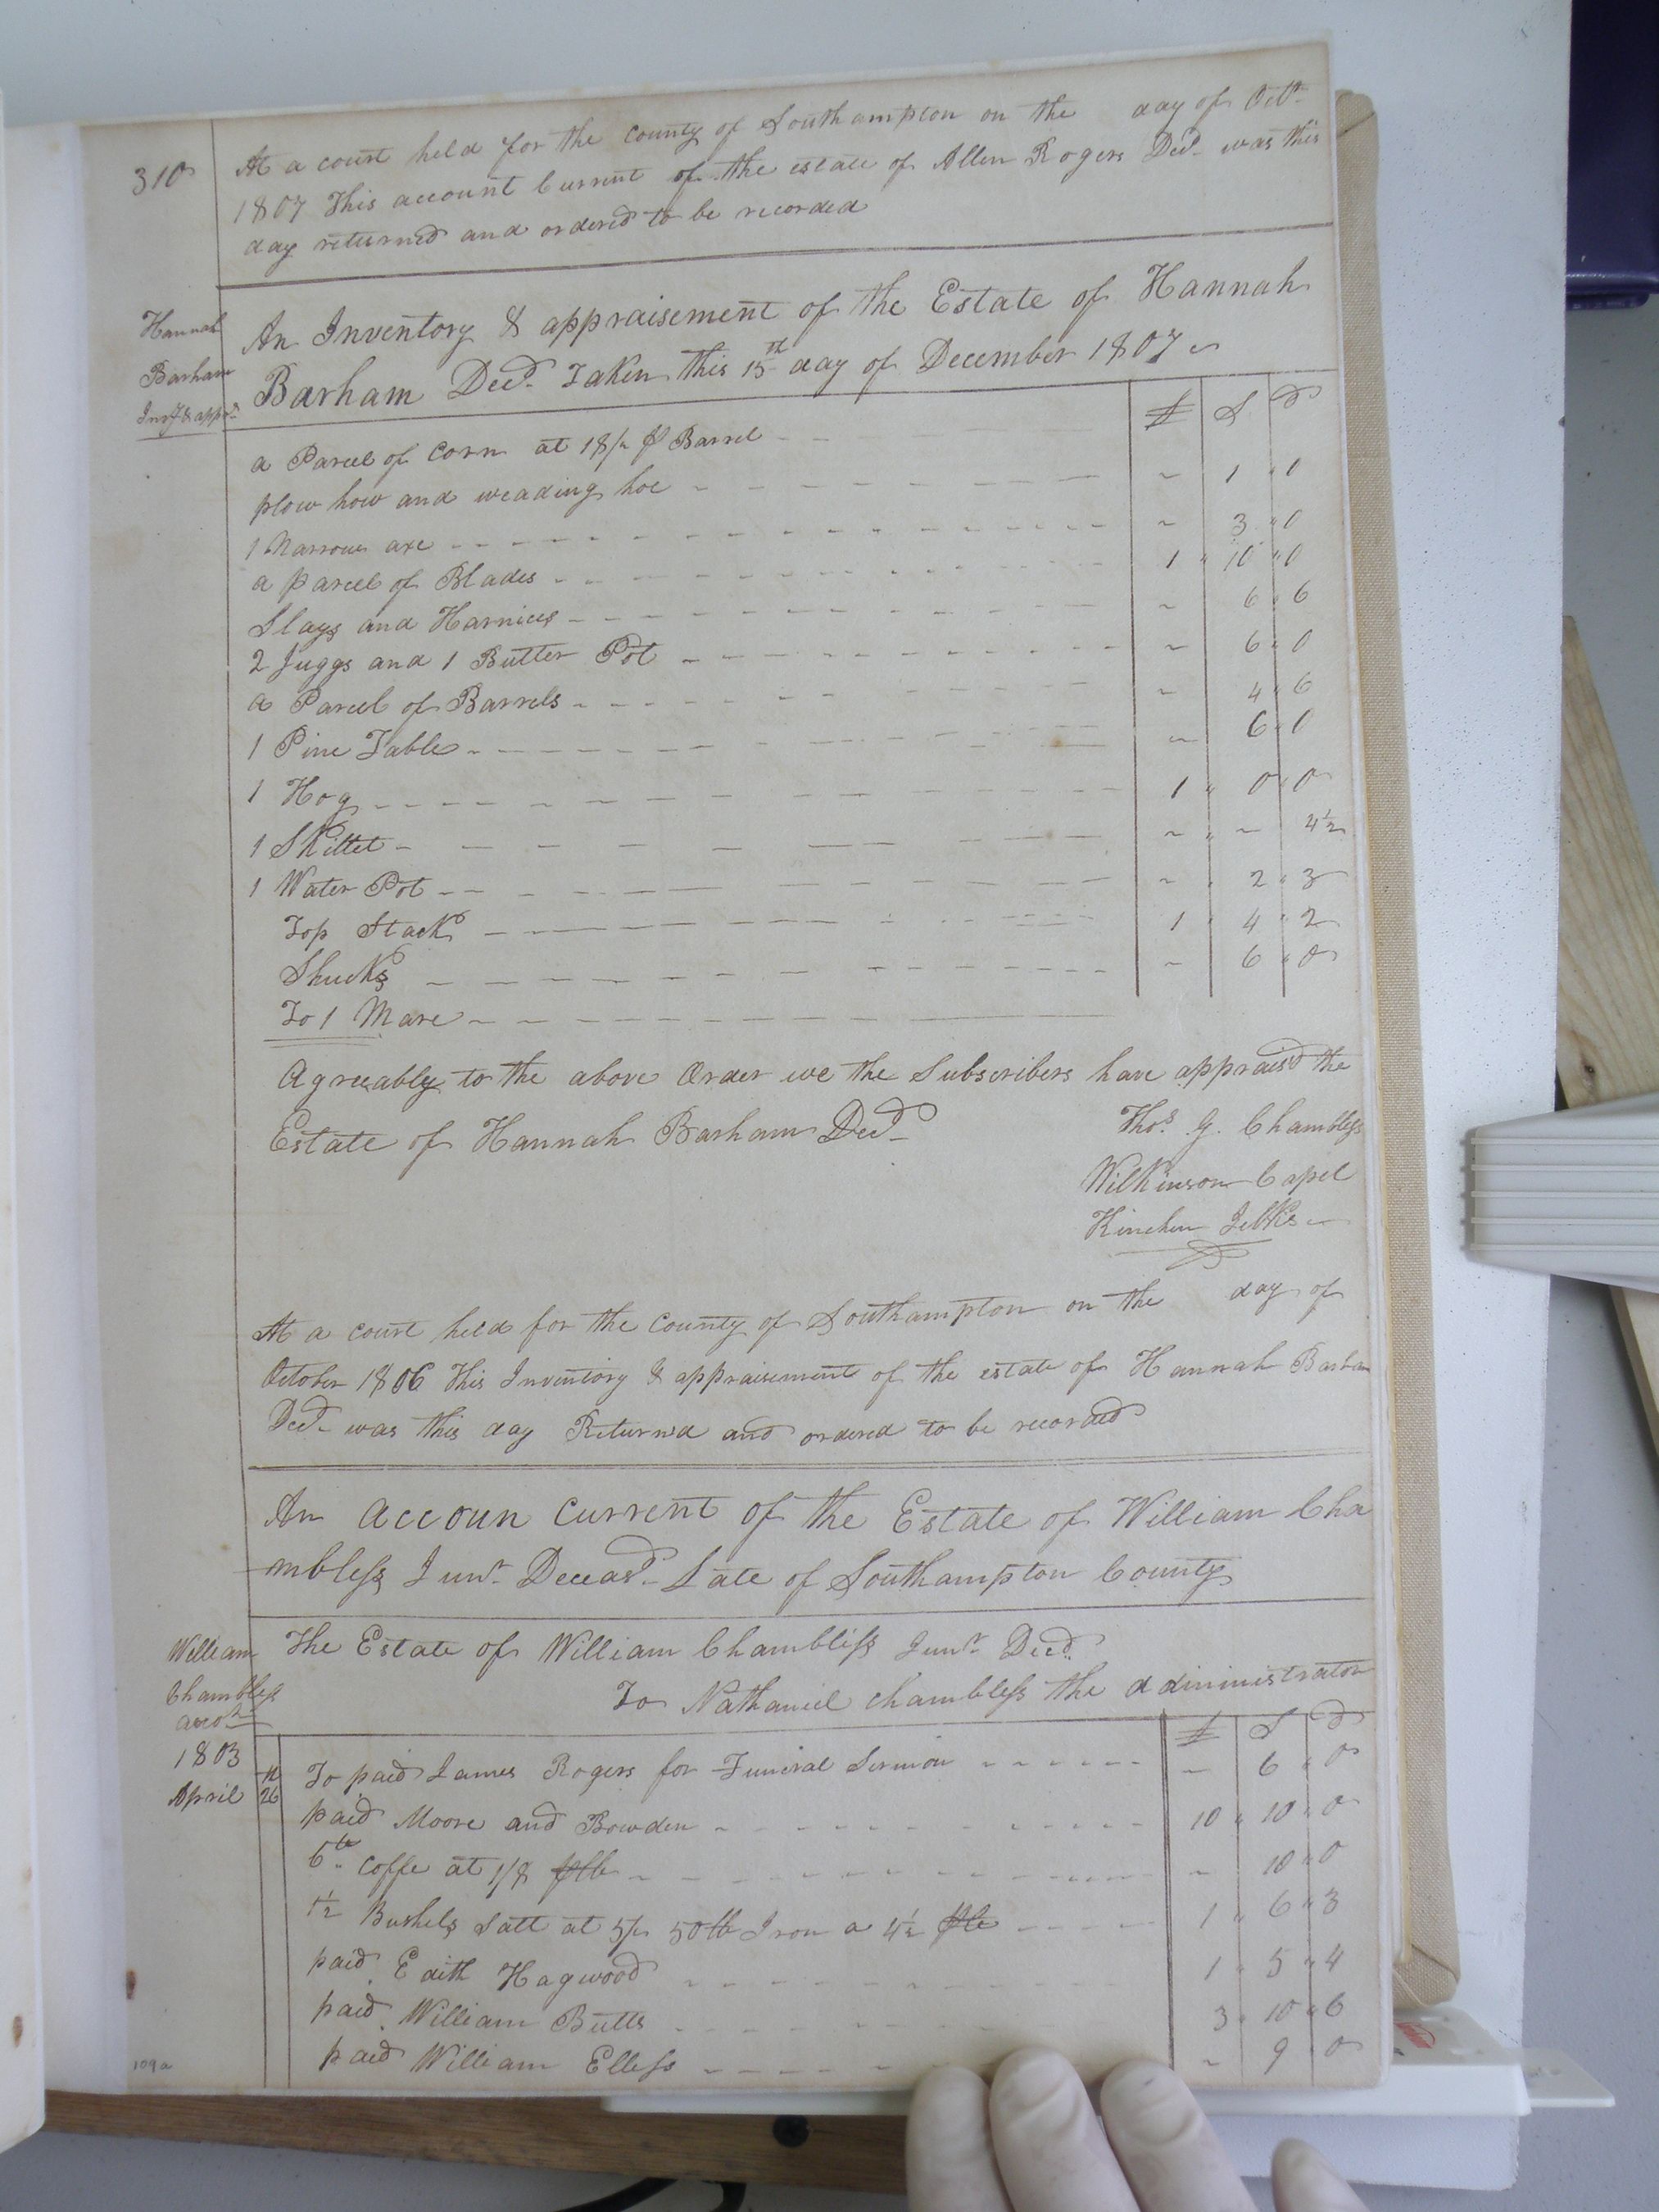 310
At a court held for the County of Southampton on the day of Octr
1807 This account Current of the estate of Allen Rogers Decd. was this
day returned and ordered to be recorded
Hannah
Barham
Invy & apprt
An Inventory & appraisement of the Estate of Hannah
Barham Decd. Taken this 15th day of December 1807
£ S D
a Parcel of Corn at 18/ pr Barrel
plow how and weading hoe ~ 1 " 0
1 Narrow axe ~ 3 " 0
a parcel of Blades 1 " 10 " 0
Slays and Harnices ~ 6 " 6
2 Juggs and 1 Butter Pot ~ 6 " 0
a Parcel of Barrels ~ 4 " 6
1 Pine Table ~ 6 " 0
1 Hog 1 " 0 " 0
1 Skillet ~ " ~ 4½
1 Water Pot ~ " 2 " 3
Top Stack 1 " 4 " 2
Shucks ~ 6 " 0
To 1 Mare
Agreeably to the above Order we the Subscribers have appraisd the
Estate of Hannah Barham Decd.
Thos. G. Chambless
Wilkinson Capel
Kinchen Jelks
At a court held for the County of Southampton on the day of
October 1806 This Inventory & appraisement of the estate of Hannah Barham
Decd. was this day Returnd and ordered to be recorded
An accoun Current of the Estate of William Cha
mbless Junr. Deceasd. Late of Southampton County
William
Chambless
acct
1803
April 26
The Estate of William Chambliss Junr. Decd.
To Nathaniel chambless the administrator
£ S D
To paid James Rogers for Funeral Sermon ~ 6 " 0
paid Moore and Bowden 10 " 10 " 0
6lb Coffe at 1/8 plb ~ 10 " 0
1½ Bushels Salt at 5/ 50lb Iron a 4½ plb 1 " 6 " 3
paid Edith Hagwood 1 " 5 " 4
paid William Butts 3 " 10 " 6
paid William Elless ~ 9 " 0
109a